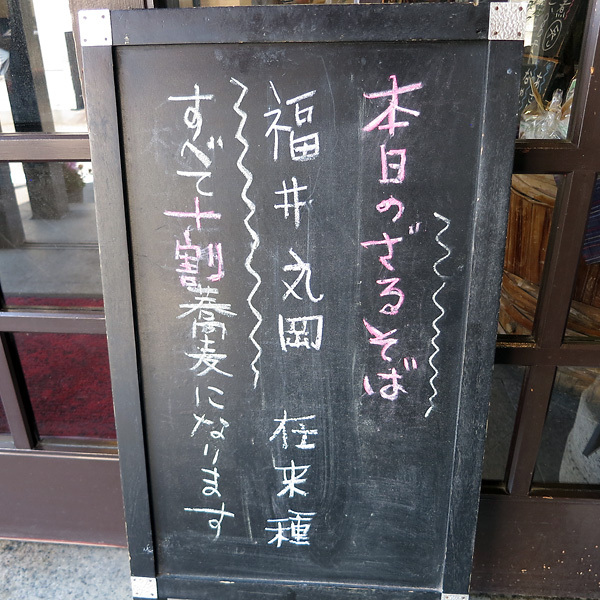 本日のざるそば
福井丸岡 在来種
すべて十割蕎麦になります